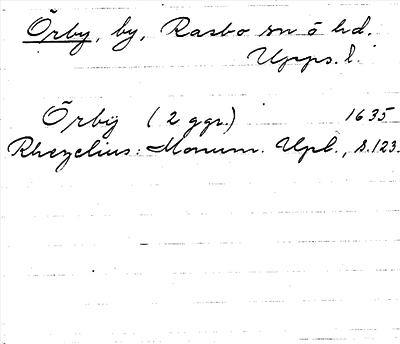 Örby, by, Rasbo sn ö hd.
Upps. l.
Örbÿ (2 ggr.) 1635
Rhezelius: Monum. Upl., s. 123.